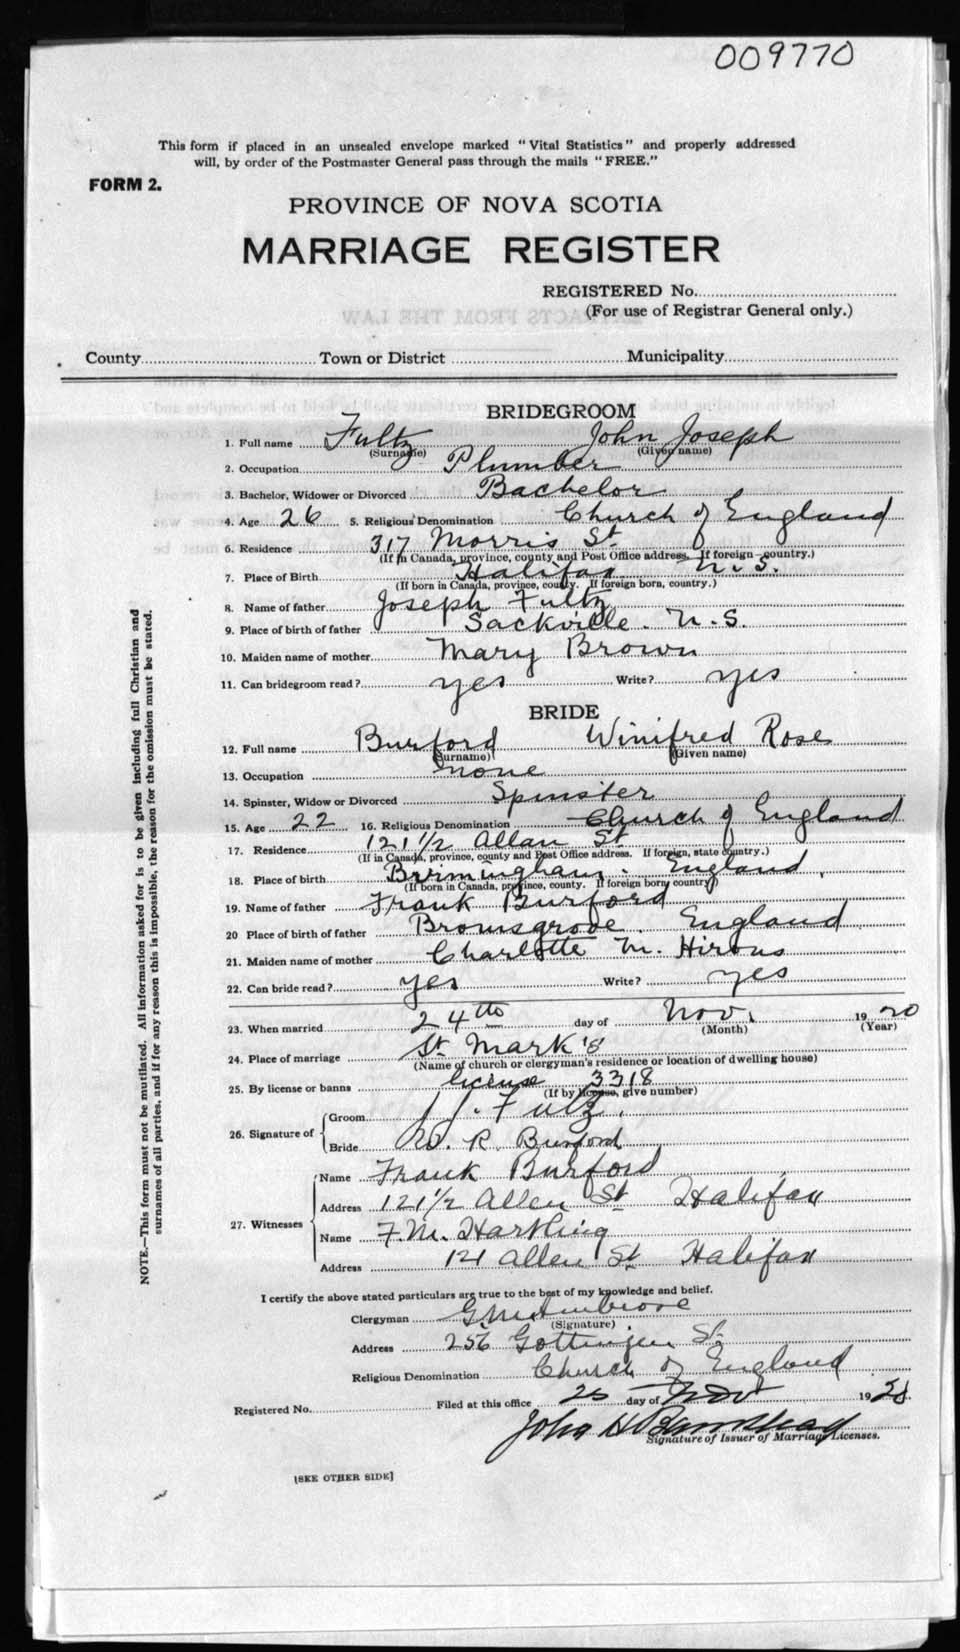 009770
This form if placed in an unsealed envelope marked "Vital Statistics" and properly addressed
will, by order of the Postmaster General pass through the mails "FREE."
FORM 2.
PROVINCE OF NOVA SCOTIA
MARRIAGE REGISTER
REGISTERED No.
(For use of Registrar General only.)
County Town or District Municipality
BRIDEGROOM
1. Full name Fultz John Joseph
(Surname) (Given name)
2. Occupation Plumber
3. Bachelor, Widower or Divorced Bachelor
4. Age 26 5. Religious Denomination Church of England
6. Residence 317 Morris St.
(If in Canada, province, county and Post Office address. If foreign country.)
7. Place of Birth Halifax N.S.
(If born in Canada, province, county. If foreign born, country.)
8. Name of father Joseph Fultz
9. Place of birth of father Sackville. N.S.
10. Maiden name of mother Mary Brown
11. Can bridegroom read? yes Write? yes
BRIDE
12. Full name Burford Winifred Rose
(Surname) (Given name)
13. Occupation none
14. Spinster, Widow or Divorced Spinster
15. Age 22 16. Religious Denomination Church of England
17. Residence 121 1/2 Allan St
(If in Canada, province, county and Post Office address. If foreign, state country.)
18. Place of birth Birmingham. England.
(If born in Canada, province, county. If foreign born, country)
19. Name of father Frank Burford
20 Place of birth of father Bromsgrove. England
21. Maiden name of mother Charlotte M. Hirons
22. Can bride read? yes Write? yes
23. When married 24th day of Nov. 1920
(Month) (Year)
24. Place of marriage St. Mark's
(Name of church or clergyman's residence or location of dwelling house)
25. By license or banns license 3318
(If by license, give number)
26. Signature of Groom J. J. Fultz.
Bride W. R. Burford
27. Witnesses Name Frank Burford
Address 121 1/2 Allen St Halifax
Name F.M. Hartling
Address 121 Allen St Halifax
I certify the above stated particulars are true to the best of my knowledge and belief.
Clergyman
(Signature)
Address 256 Gottingen St.
Religious Denomination Church of England
Registered No. Filed at this office 25 day of Nov 19
John H
Signature of Issuer of Marriage Licenses.
[SEE OTHER SIDE]
NOTE.—This form must not be mutilated. All information asked for is to be given including full Christian and
surnames of all parties, and if for any reason this is impossible, the reason for the omission must be stated.